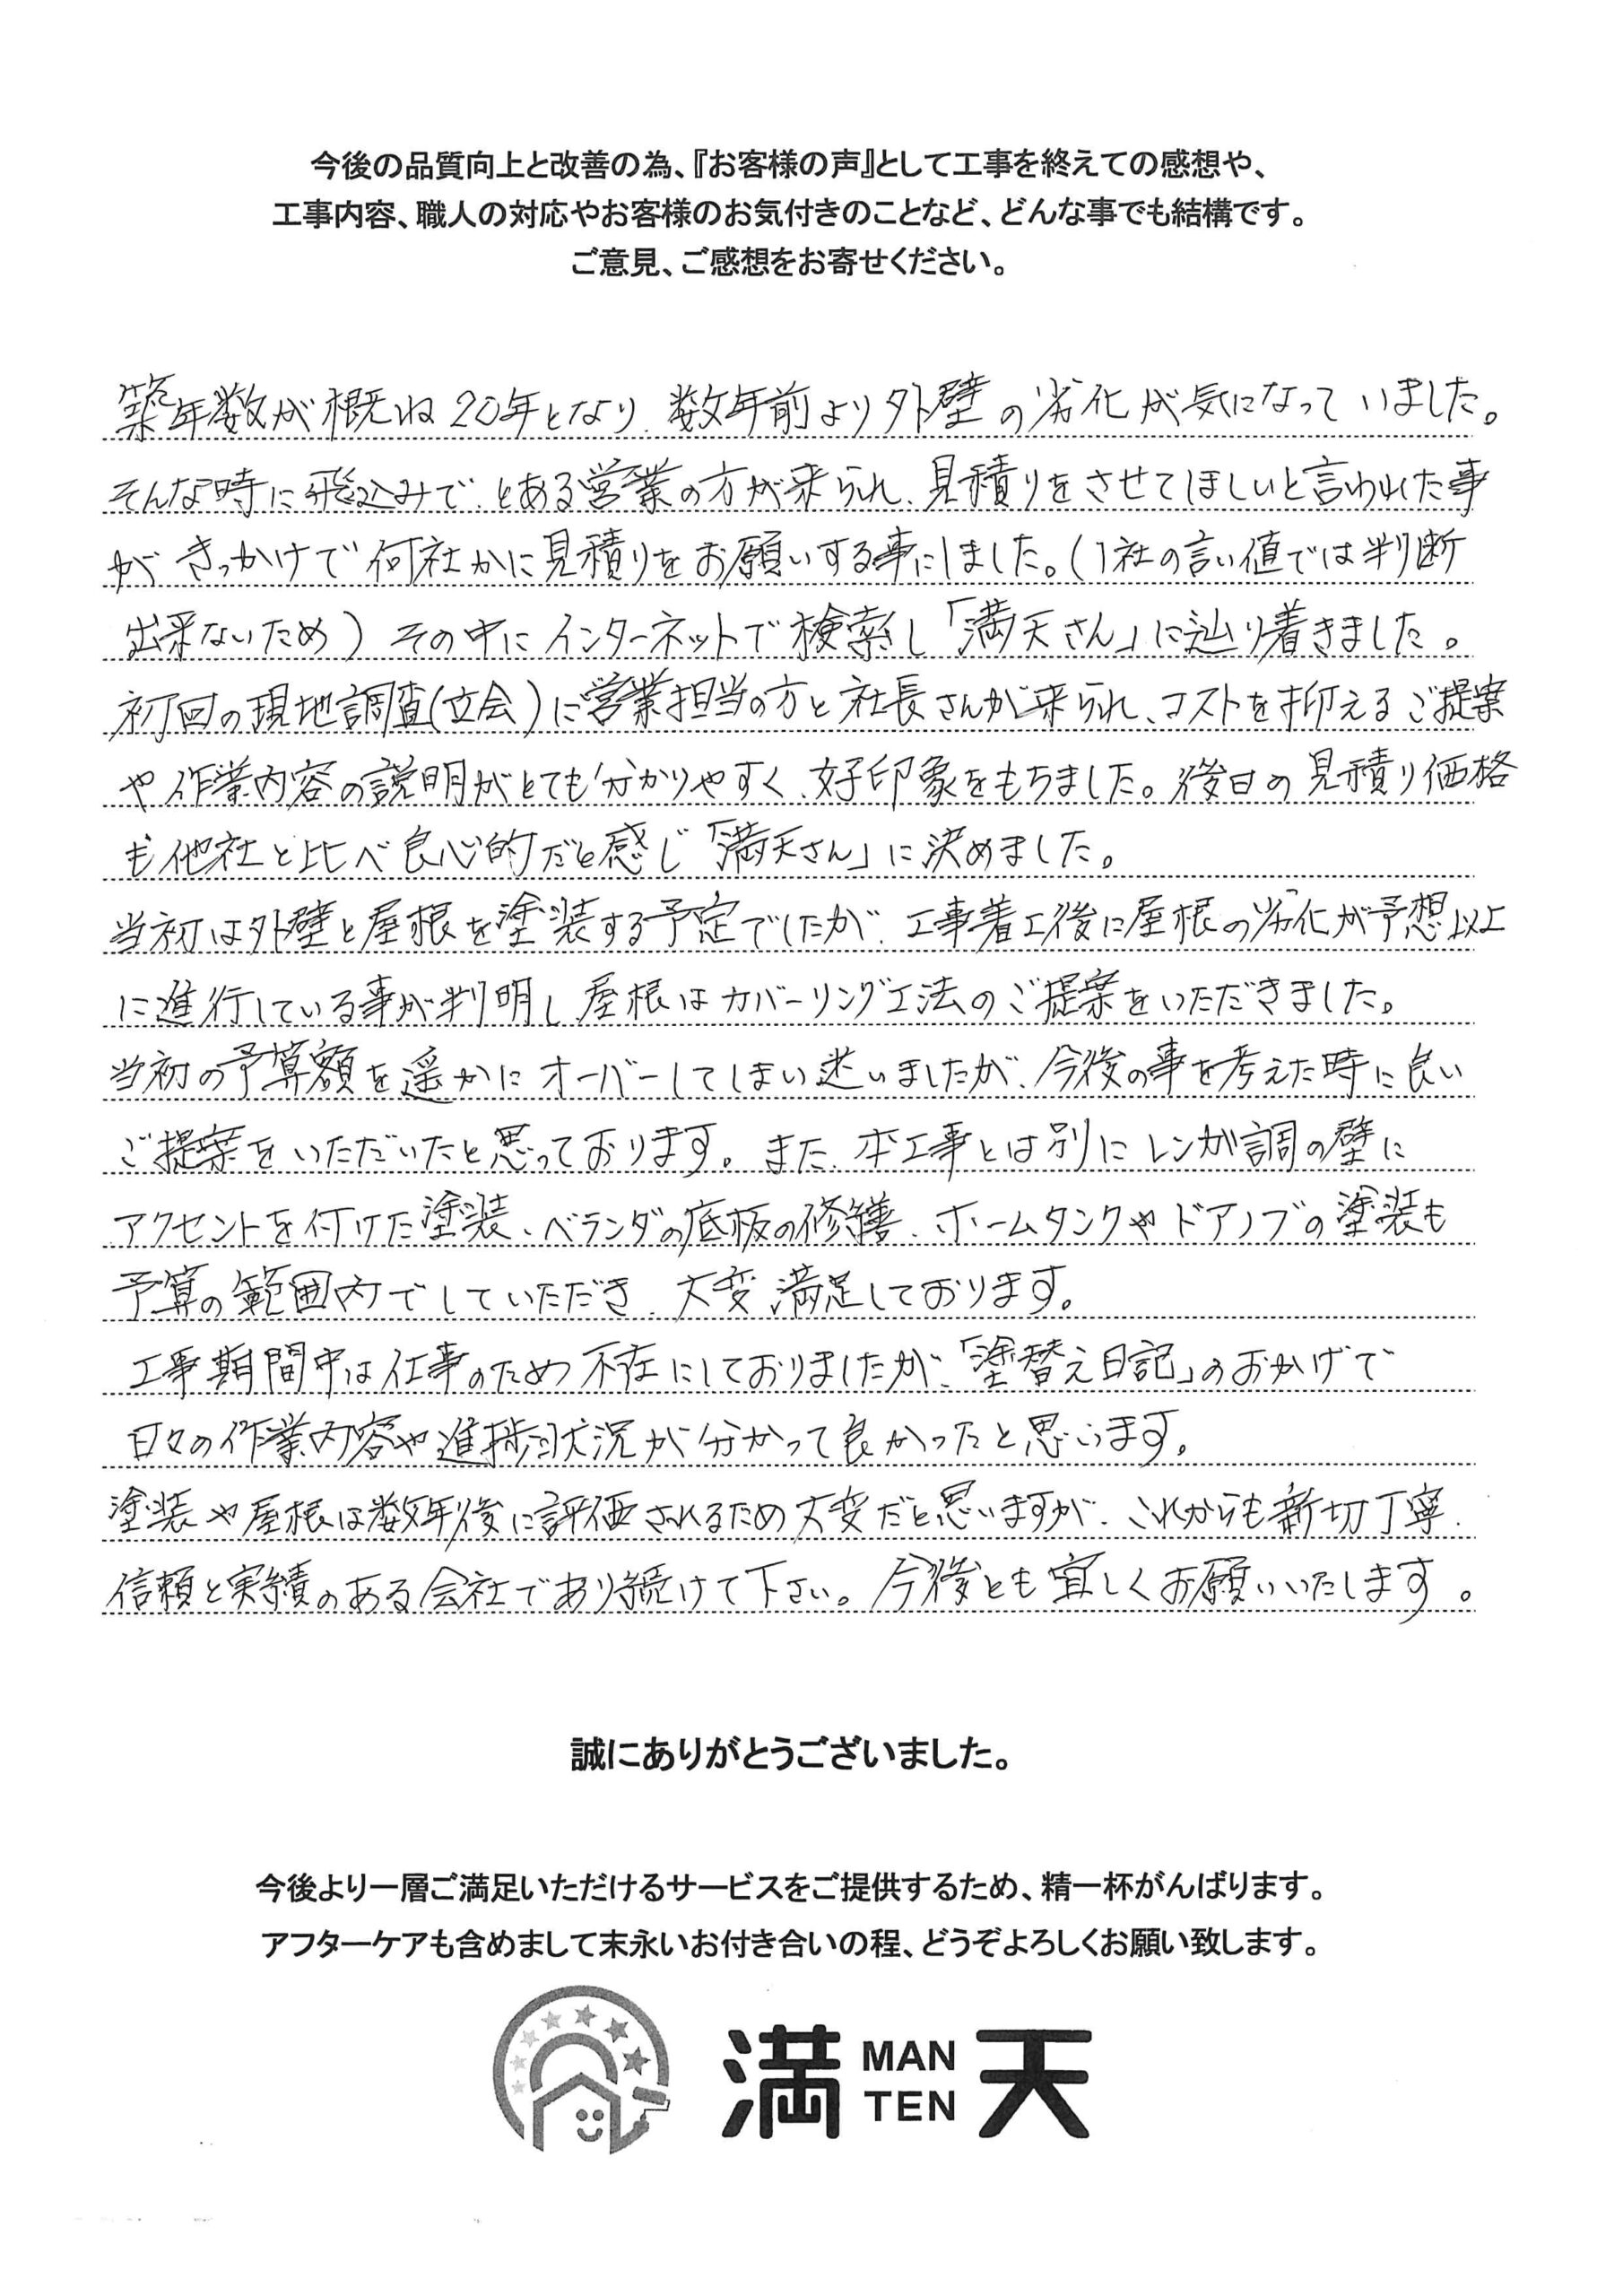 今後の品質向上と改善の為、『お客様の声』として工事を終えての感想や、
工事内容、職人の対応やお客様のお気付きのことなど、どんな事でも結構です。
ご意見、ご感想をお寄せください。
築年数が概ね20年となり、数年前より外壁の劣化が気になっていました。
そんな時に飛込みで、とある営業の方が来られ、見積りをさせてほしいと言われた事
がきっかけで何社かに見積りをお願いする事にしました。(1社の言い値では判断
出来ないため)その中にインターネットで検索し「満天さん」に辿り着きました。
初回の現地調査(立会)に営業担当の方と社長さんが来られ、コストを抑えるご提案
や作業内容の説明がとても分かりやすく、好印象をもちました。後日の見積り価格
も他社と比べ良心的だと感じ「満天さん」に決めました。
当初は外壁と屋根を塗装する予定でしたが、工事着工後に屋根の劣化が予想以上
に進行している事が判明し屋根はカバーリング工法のご提案をいただきました。
当初の予算額を遥かにオーバーしてしまい迷いましたが、今後の事を考えた時に良い
ご提案をいただいたと思っております。また、本工事とは別にレンガ調の壁に
アクセントを付けた塗装、ベランダの底板の修繕、ホームタンクやドアノブの塗装も
予算の範囲内でしていただき、大変満足しております。
工事期間中は仕事のため不在にしておりましたが、「塗替え日記」のおかげで
日々の作業内容や進捗状況が分かって良かったと思います。
塗装や屋根は数年後に評価されるため大変だと思いますが、これからも親切丁寧、
信頼と実績のある会社であり続けて下さい。今後とも宜しくお願いいたします。
誠にありがとうございました。
今後より一層ご満足いただけるサービスをご提供するため、精一杯がんばります。
アフターケアも含めまして末永いお付き合いの程、どうぞよろしくお願い致します。
満 MAN TEN 天